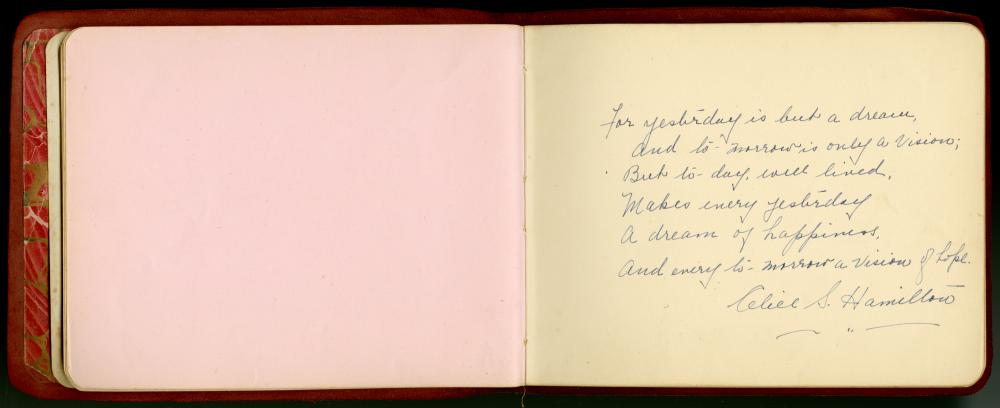 For yesterday is but a dream,
And to-morrow is only a Vision;
But to-day, well lived,
Makes every yesterday
A dream of happiness,
And every to-morrow a Vision of hope.
S. Hamilton